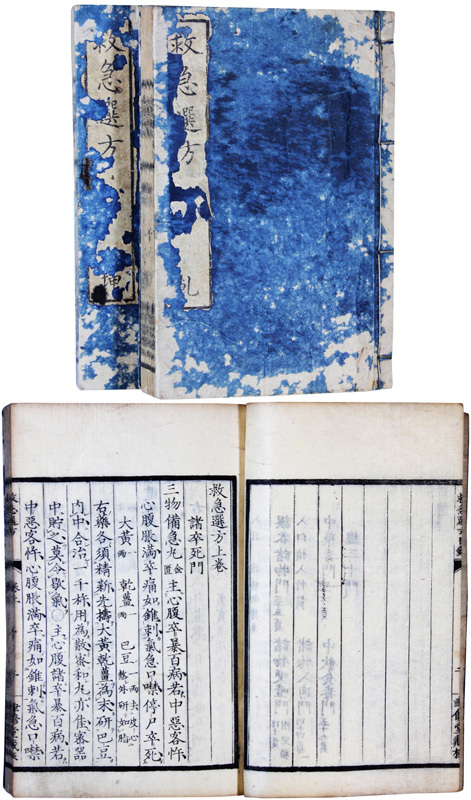 救急選方
救急選方 坤
救急選方上卷
諸卒死門
三物備急丸 金匱 主心腹卒暴百病若中惡客忤
心腹脹滿卒痛如錐刺氣急口噤停尸卒死
大黃 一兩 乾薑 一兩 巴豆 一兩去皮心熬外研如脂
右藥各須精新先擣大黃乾薑為末研巴豆
內中合治一千杵用為散蜜和丸亦佳密器
中貯之莫令歇氣〇主心腹諸卒暴百病若
中惡客忤心腹脹滿卒痛如錐刺氣急口噤